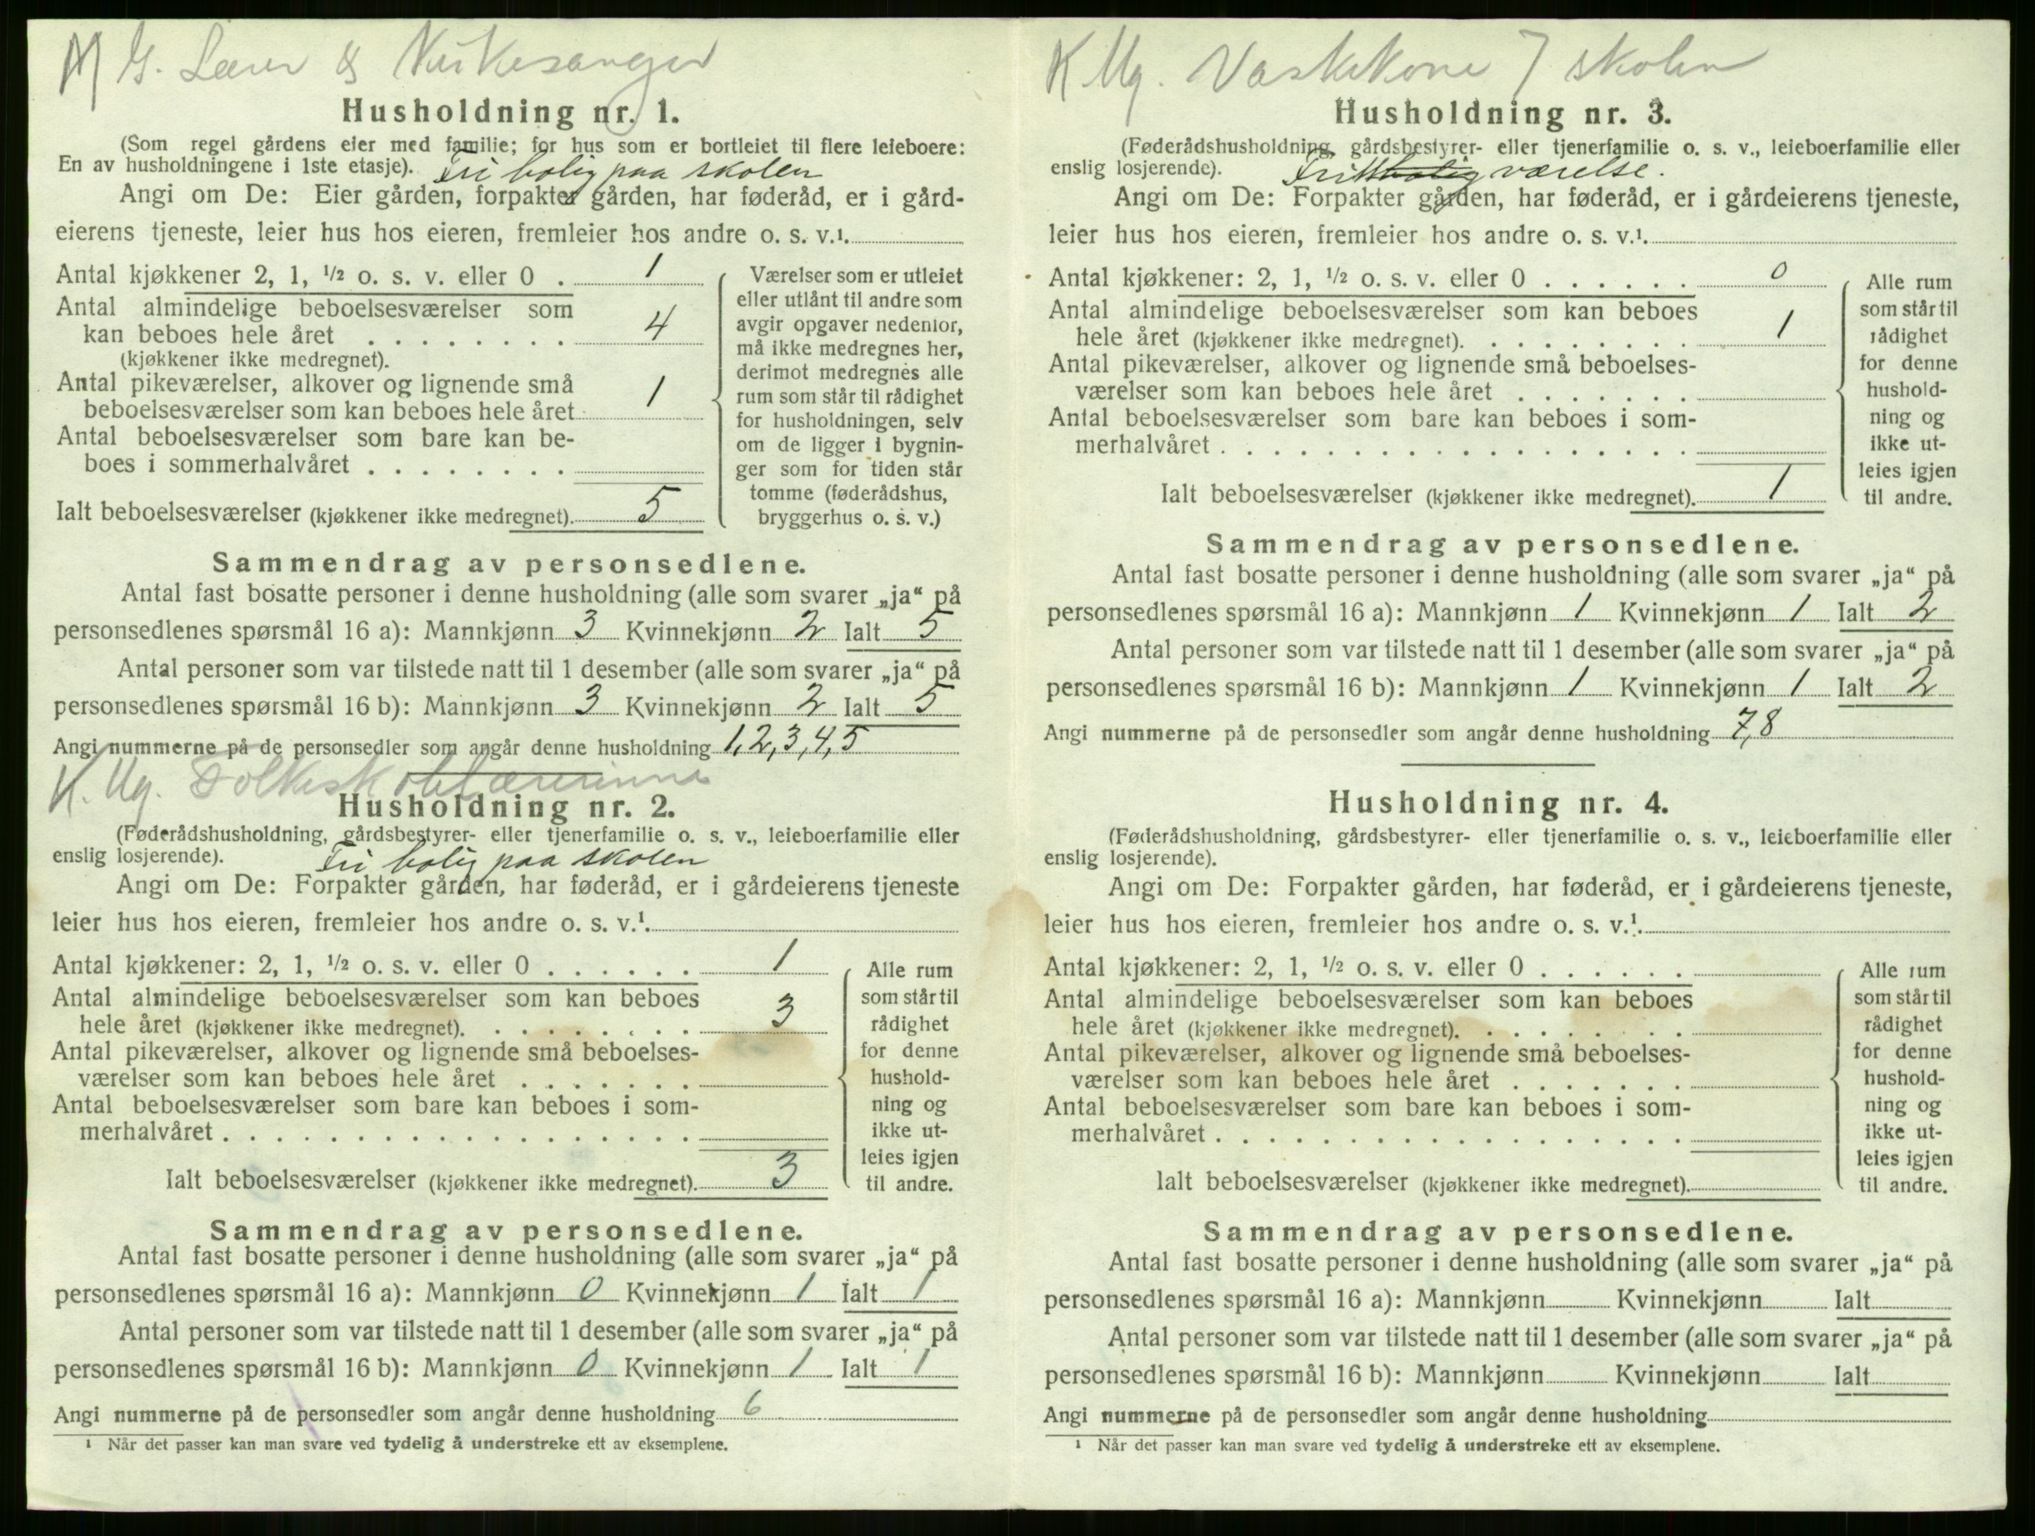 M G. Lærer & Kirkesanger
Husholdning nr. 1.
(Som regel gårdens eier med familie; for hus som er bortleiet til flere leieboere:
En av husholdningene i 1ste etasje). Fri bolig paa skolen
Angi om De: Eier gården, forpakter gården, har føderåd, er i gård-
eierens tjeneste, leier hus hos eieren, fremleier hos andre o. s. v.¹.
Antal kjøkkener 2, 1, ½ o. s. v. eller 0 . 1
Antal almindelige beboelsesværelser som
kan beboes hele året . . . . . . . . 4
(kjøkkener ikke medregnet).
Antal pikeværelser, alkover og lignende små
beboelsesværelser som kan beboes hele året 1
Antal beboelsesværelser som bare kan be-
boes i sommerhalvåret . . . . . . .
Ialt beboelsesværelser (kjøkkener ikke medregnet). 5
Værelser som er utleiet
eller utlånt til andre som
avgir opgaver nedenfor,
må ikke medregnes her,
derimot medregnes alle
rum som står til rådighet
for husholdningen, selv
om de ligger i bygnin-
ger som for tiden står
tomme (føderådshus,
bryggerhus o. s. v.)
Sammendrag av personsedlene.
Antal fast bosatte personer i denne husholdning (alle som svarer „ja“ på
personsedlenes spørsmål 16 a): Mannkjønn 3 Kvinnekjønn 2 Ialt 5
Antal personer som var tilstede natt til 1 desember (alle som svarer „ja“ på
personsedlenes spørsmål 16 b): Mannkjønn 3 Kvinnekjønn 2 Ialt 5
Angi nummerne på de personsedler som angår denne husholdning 1,2,3,4,5
K. Ug. Folkeskolelærerinne
Husholdning nr. 2.
(Føderådshusholdning, gårdsbestyrer- eller tjenerfamilie o. s. v., leieboerfamilie eller
enslig losjerende). Fri bolig paa skolen
Angi om De: Forpakter gården, har føderåd, er i gårdeierens tjeneste
leier hus hos eieren, fremleier hos andre o. s. v.¹.
Antal kjøkkener: 2, 1, ½ o. s. v. eller 0 . . . . . . 1
Antal almindelige beboelsesværelser som kan beboes
hele året (kjøkkener ikke medregnet). . . . . . . . . 3
Antal pikeværelser, alkover og lignende små beboelses-
værelser som kan beboes hele året . . . . . . .
Antal beboelsesværelser som bare kan beboes i som-
merhalvåret . . . . . . . . . . . . . . . . . .
Ialt beboelsesværelser (kjøkkener ikke medregnet). 3
Alle rum
som står til
rådighet
for denne
hushold-
ning og
ikke ut-
leies igjen
til andre.
Sammendrag av personsedlene.
Antal fast bosatte personer i denne husholdning (alle som svarer „ja“ på
personsedlenes spørsmål 16 a): Mannkjønn 0 Kvinnekjønn 1 Ialt 1
Antal personer som var tilstede natt til 1 desember (alle som svarer „ja“ på
personsedlenes spørsmål 16 b): Mannkjønn 0 Kvinnekjønn 1 Ialt 1
Angi nummerne på de personsedler som angår denne husholdning 6
¹ Når det passer kan man svare ved tydelig å understreke ett av eksemplene.
K Ug. Vaskekone I skolen
Husholdning nr. 3.
(Føderådshusholdning, gårdsbestyrer- eller tjenerfamilie o. s. v., leieboerfamilie eller
enslig losjerende). Fritt bolig værelse.
Angi om De: Forpakter gården, har føderåd, er i gårdeierens tjeneste,
leier hus hos eieren, fremleier hos andre o. s. v.¹.
Antal kjøkkener: 2, 1, ½ o. s. v. eller 0 . . . . . . 0
Antal almindelige beboelsesværelser som kan beboes
hele året (kjøkkener ikke medregnet). . . . . . . . . 1
Antal pikeværelser, alkover og lignende små beboelses-
værelser som kan beboes hele året . . . . . . .
Antal beboelsesværelser som bare kan beboes i som-
merhalvåret . . . . . . . . . . . . . . . . . .
Ialt beboelsesværelser (kjøkkener ikke medregnet). 1
Alle rum
som står til
rådighet
for denne
hushold-
ning og
ikke ut-
leies igjen
til andre.
Sammendrag av personsedlene.
Antal fast bosatte personer i denne husholdning (alle som svarer „ja“ på
personsedlenes spørsmål 16 a): Mannkjønn 1 Kvinnekjønn 1 Ialt 2
Antal personer som var tilstede natt til 1 desember (alle som svarer „ja“ på
personsedlenes spørsmål 16 b): Mannkjønn 1 Kvinnekjønn 1 Ialt 2
Angi nummerne på de personsedler som angår denne husholdning 7,8
Husholdning nr. 4.
(Føderådshusholdning, gårdsbestyrer- eller tjenerfamilie o. s. v., leieboerfamilie eller
enslig losjerende).
Angi om De: Forpakter gården, har føderåd, er i gårdeierens tjeneste,
leier hus hos eieren, fremleier hos andre o. s. v.¹.
Antal kjøkkener: 2, 1, ½ o. s. v. eller 0 . . . . . .
Antal almindelige beboelsesværelser som kan beboes
hele året (kjøkkener ikke medregnet). . . . . . . . .
Antal pikeværelser, alkover og lignende små beboelses-
værelser som kan beboes hele året . . . . . . .
Antal beboelsesværelser som bare kan beboes i som-
merhalvåret . . . . . . . . . . . . . . . . . .
Ialt beboelsesværelser (kjøkkener ikke medregnet).
Alle rum
som står til
rådighet
for denne
hushold-
ning og
ikke ut-
leies igjen
til andre.
Sammendrag av personsedlene.
Antal fast bosatte personer i denne husholdning (alle som svarer „ja“ på
personsedlenes spørsmål 16 a): Mannkjønn Kvinnekjønn Ialt
Antal personer som var tilstede natt til 1 desember (alle som svarer „ja“ på
personsedlenes spørsmål 16 b): Mannkjønn Kvinnekjønn Ialt
Angi nummerne på de personsedler som angår denne husholdning
¹ Når det passer kan man svare ved tydelig å understreke ett av eksemplene.